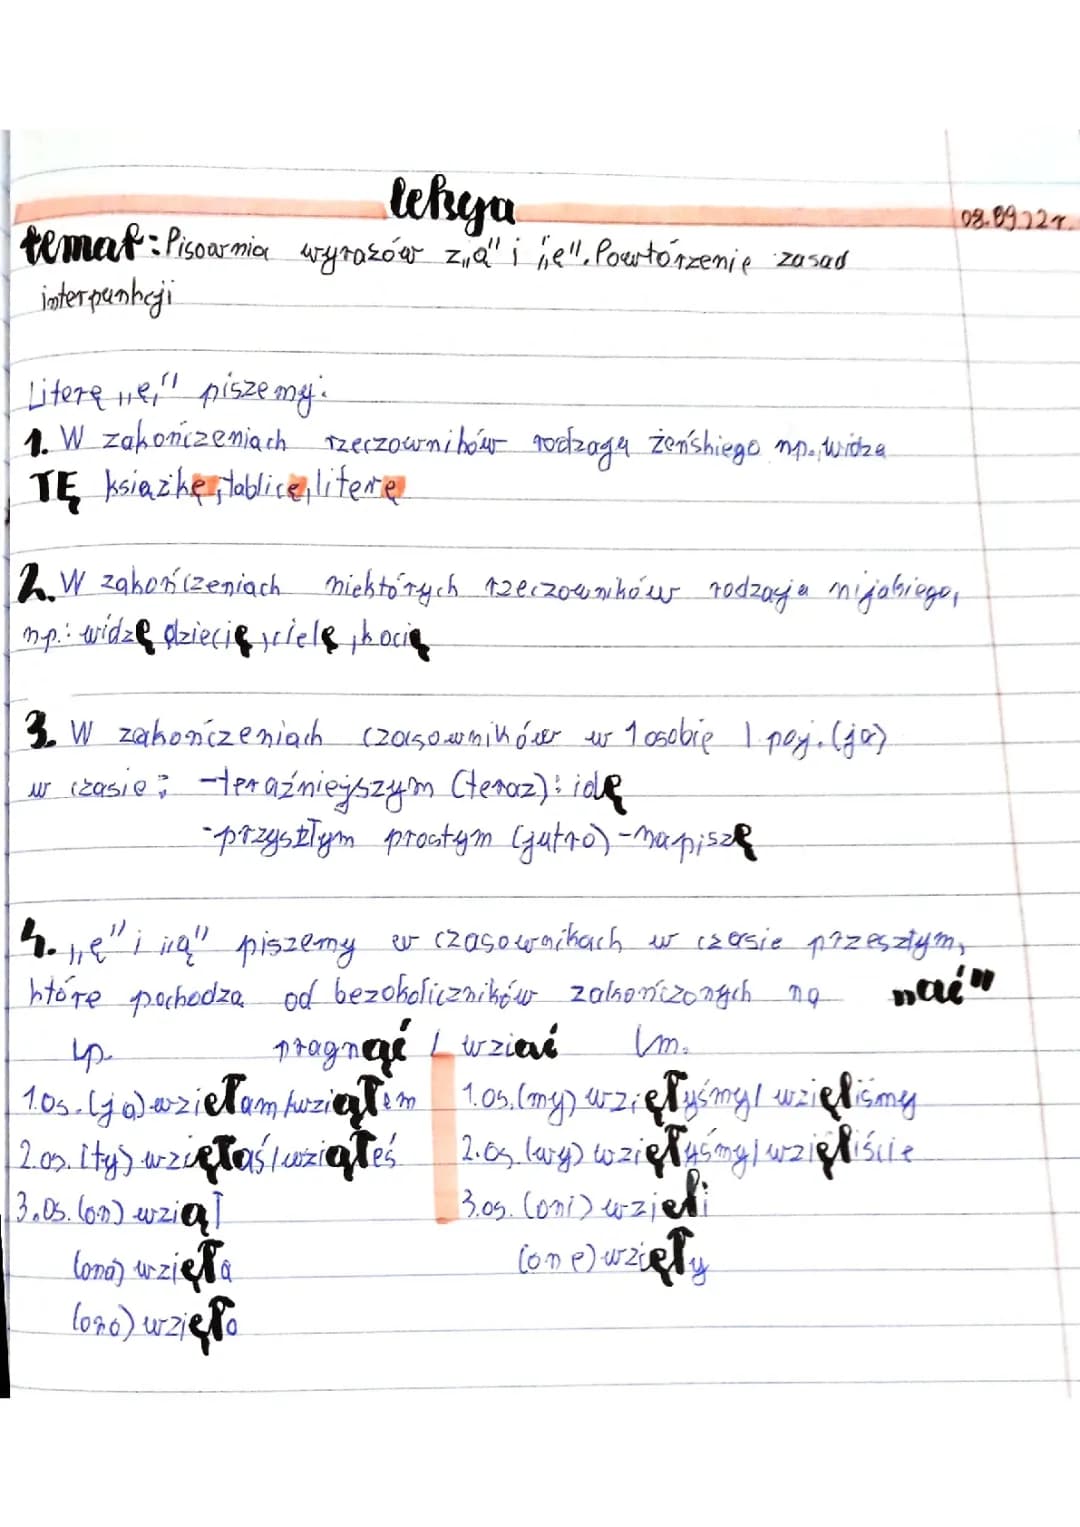 lekcja
08.09.22r.
temat: Pisownia wyrazów z „ą" i „ę". Powtórzenie zasad
interpunkcji
Literę „ę" piszemy:
1. W zakończeniach rzeczowników rodzaju żeńskiego np. widzę
TĘ książkę, tablicę, literę
2. W zakończeniach niektórych rzeczowników rodzaju nijakiego,
np.: widzę dziecię, cielę, kocię
3. W zakończeniach czasowników w 1 osobie l. poj. (ja)
w czasie: -teraźniejszym (teraz): idę
-przyszłym prostym (jutro) - napiszę
4. „ę" i „ą" piszemy w czasownikach w czasie przeszłym,
które pochodzą od bezokoliczników zakończonych na „ąć"
lp. pragnąć / wziąć lm.
1.os. (ja) wzięłam/wziąłem 1.os. (my) wzięłyśmy/ wzięliśmy
2.os. (ty) wzięłaś/wziąłeś 2.os. (wy) wzięłyśmy/ wzięliście
3.os. (on) wziął 3.os. (oni) wzięli
(ona) wzięła (one) wzięły
(ono) wzięło